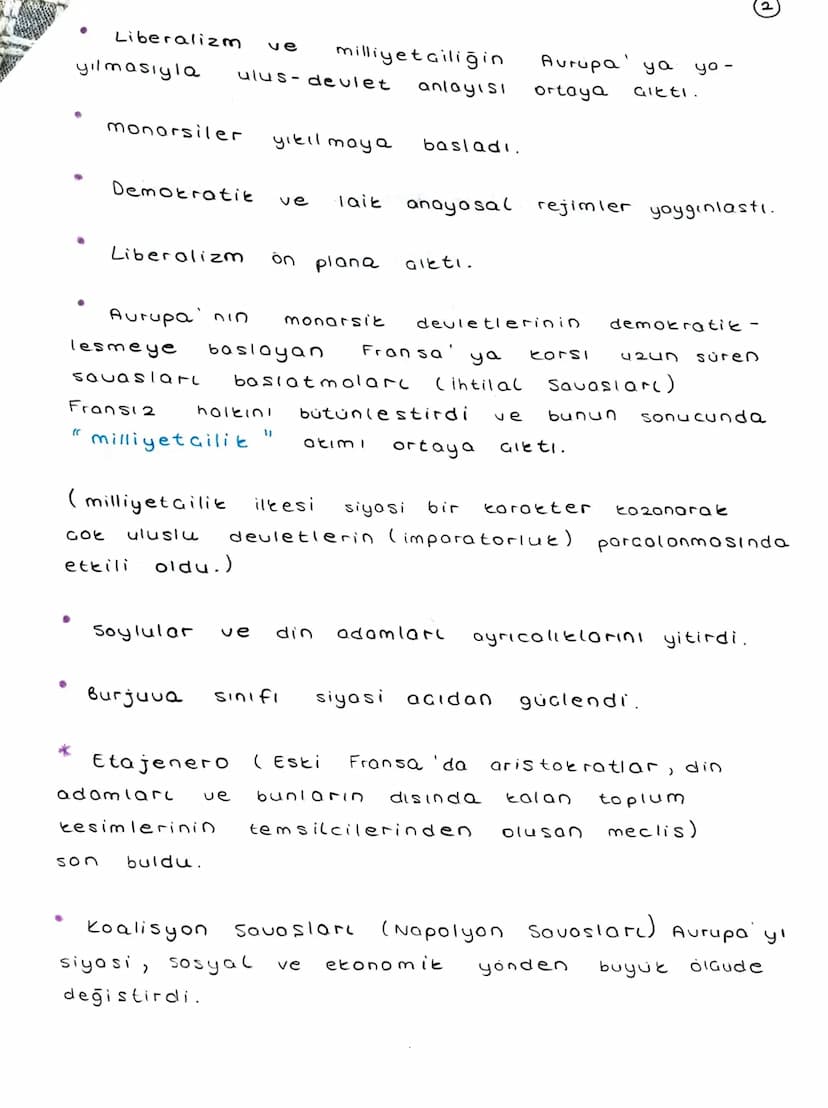 2
• Liberalizm ve milliyetciliğin Avrupa'ya ya-
yılmasıyla ulus-devlet anlayısı ortaya cıktı.
• monarsiler yıkılmaya basladı.
• Demokratik ve laik anayasal rejimler yaygınlastı.
• Liberalizm ön plana cıktı.
• Avrupa'nın monarsik devletlerinin demokratik-
lesmeye baslayan Fransa'ya karsı uzun süren
savasları baslatmaları (ihtilal Savasları)
Fransız halkını bütünlestirdi ve bunun sonucunda
"milliyetcilik" akımı ortaya cıktı.
(milliyetcilik ilkesi siyasi bir karakter kazanarak
cok uluslu devletlerin (imparatorluk) parcalanmasında
etkili oldu.)
• Soylular ve din adamları ayrıcalıklarını yitirdi.
• Burjuva sınıfı siyasi acıdan güclendi.
* Etajenero (Eski Fransa'da aristokratlar, din
adamları ve bunların dısında kalan toplum
kesimlerinin temsilcilerinden olusan meclis)
son buldu.
• Koalisyon Savaşları (Napolyon Savasları) Avrupa'yı
siyasi, sosyal ve ekonomik yönden büyük ölcude
değistirdi.